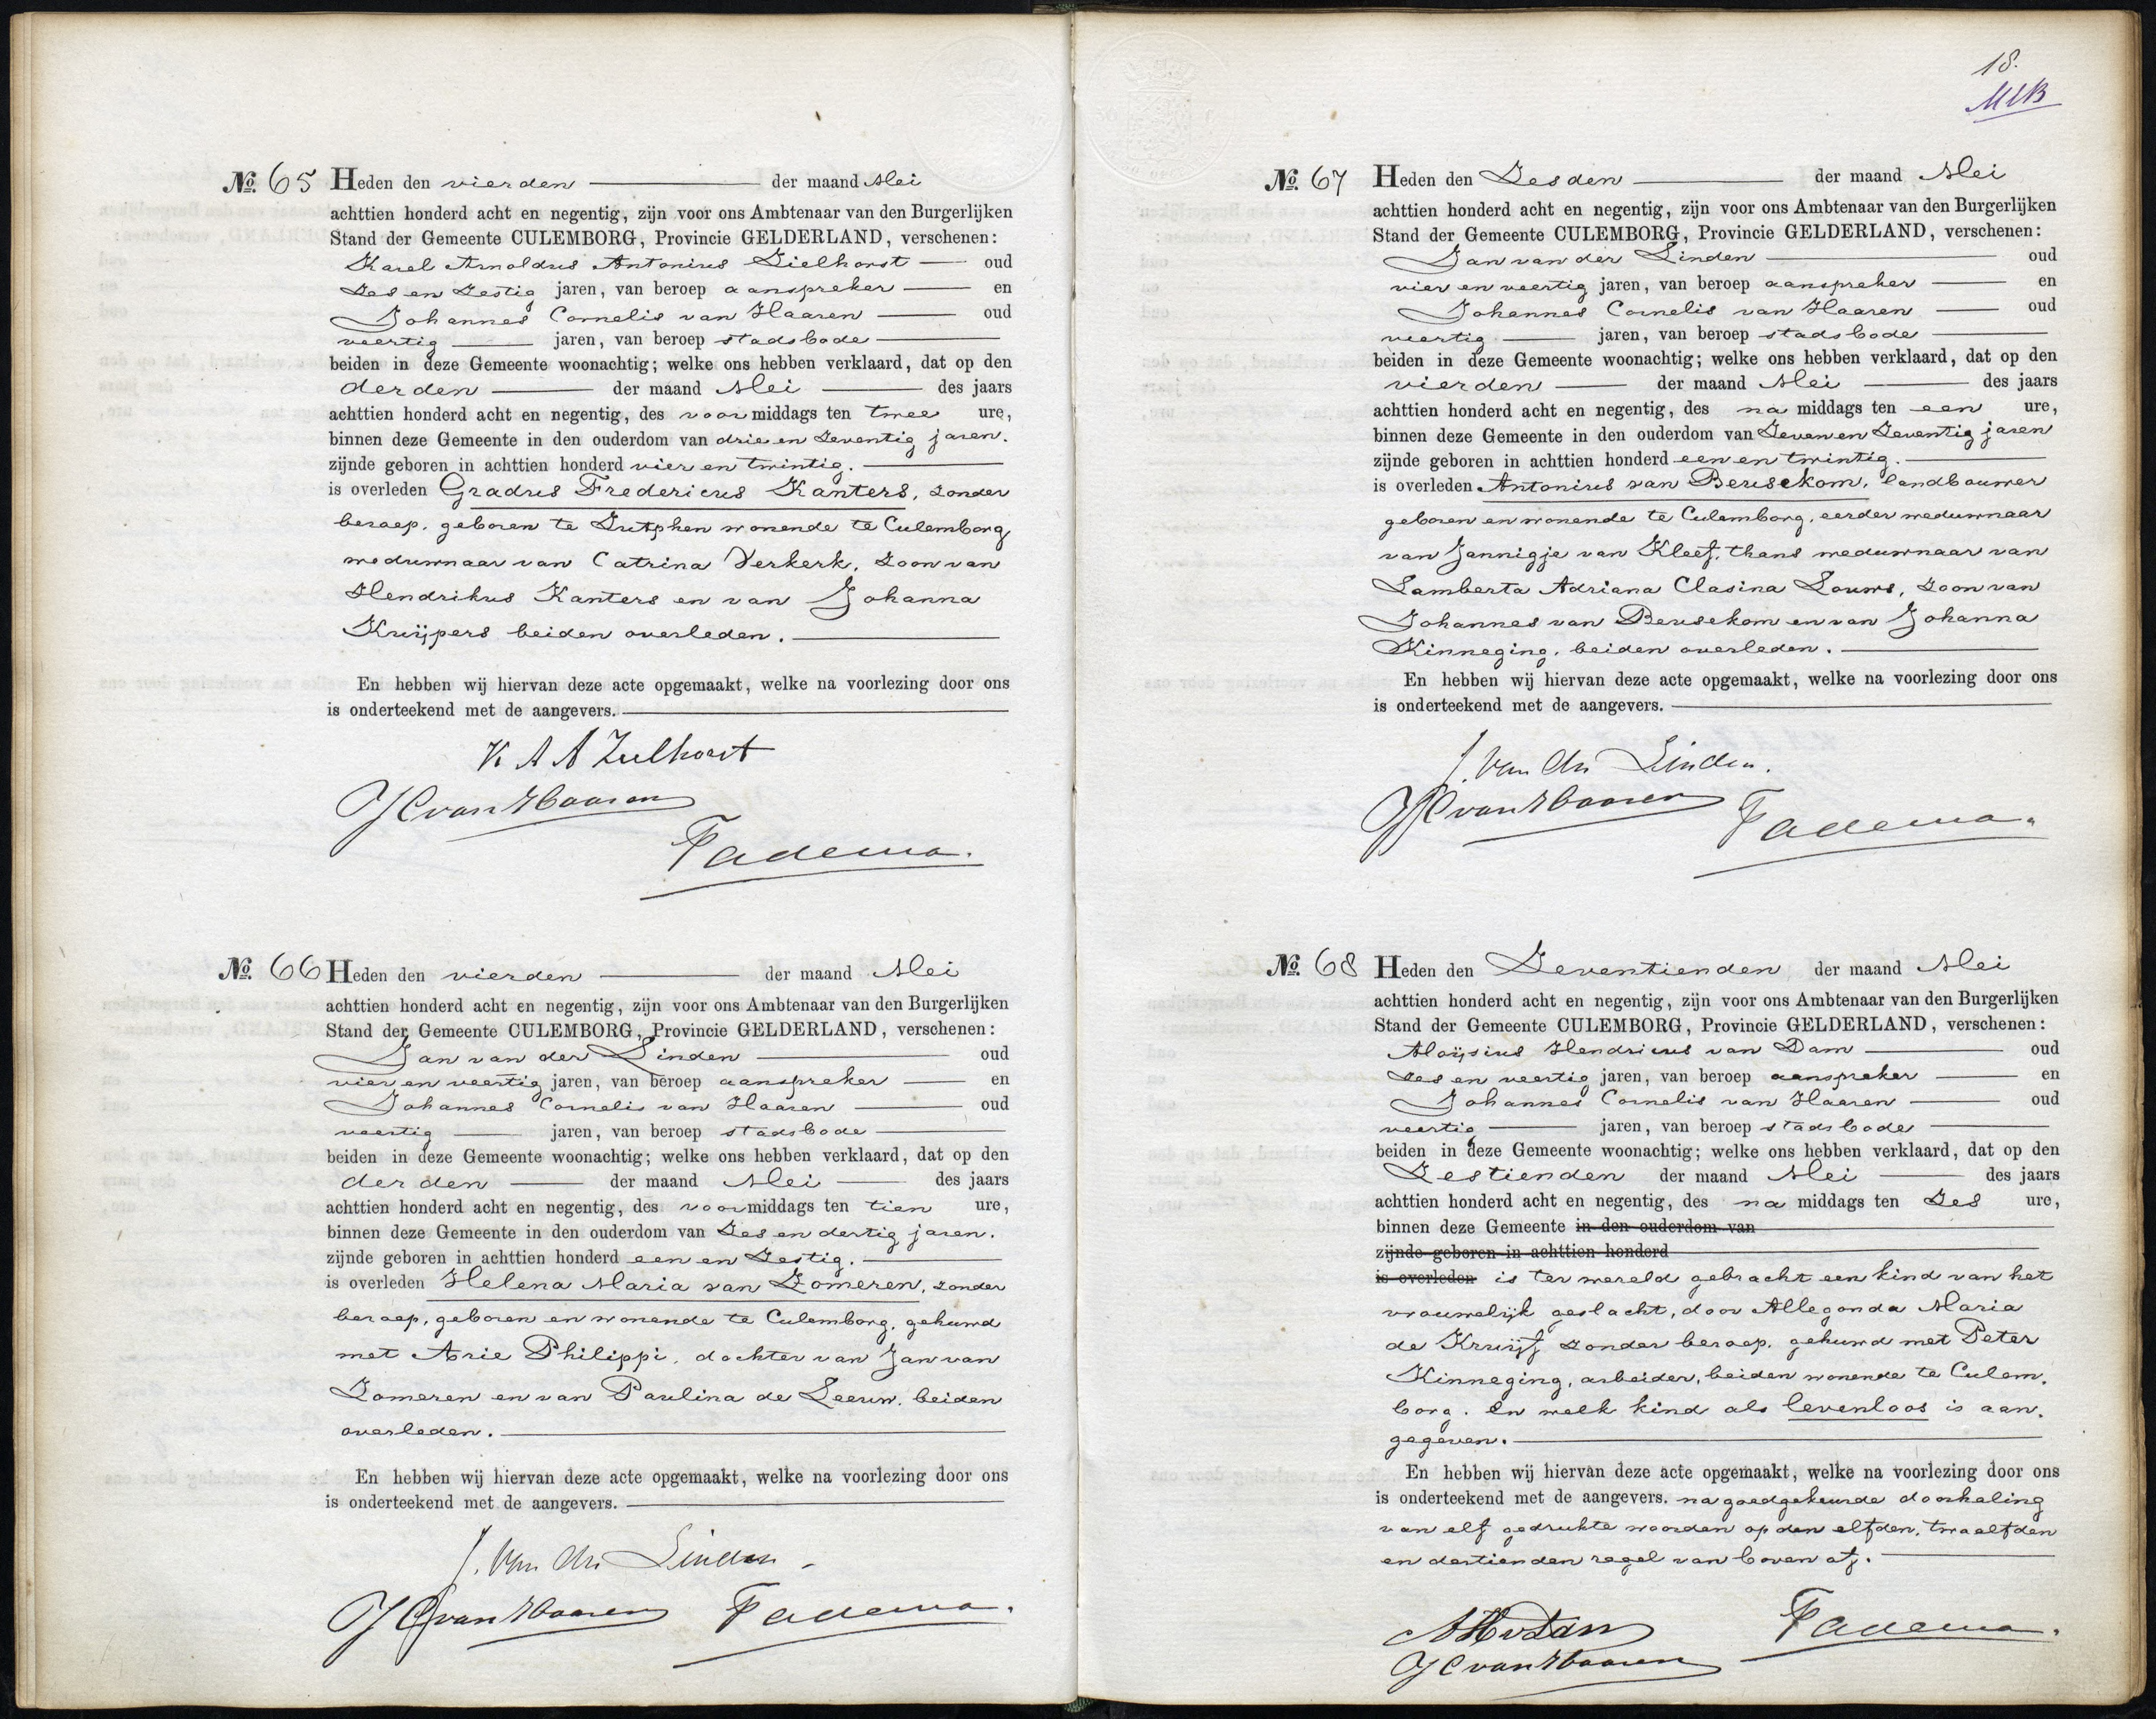 No. 65 Heden den vierden der maand Mei
achttien honderd acht en negentig, zijn voor ons Ambtenaar van den Burgerlijken
Stand der Gemeente CULEMBORG, Provincie GELDERLAND, verschenen:
Karel Arnoldus Antonius Zielhorst oud
Zes en Zestig jaren, van beroep aanspreker en
Johannes Cornelis van Haaren oud
veertig jaren, van beroep stadsbode
beiden in deze Gemeente woonachtig; welke ons hebben verklaard, dat op den
derden der maand Mei des jaars
achttien honderd acht en negentig, des voormiddags ten twee ure,
binnen deze Gemeente in den ouderdom van drie en Zeventig jaren.
zijnde geboren in achttien honderd vier en twintig.
is overleden Gradus Fredericus Kanters, zonder
beroep, geboren te Zutphen wonende te Culemborg
weduwnaar van Catrina Verkerk, Zoon van
Hendrikus Kanters en van Johanna
Kruijpers beiden overleden.
En hebben wij hiervan deze acte opgemaakt, welke na voorlezing door ons
is onderteekend met de aangevers.
K A A Zielhorst
JC van Haaren
Tadema.
No. 66 Heden den vierden der maand Mei
achttien honderd acht en negentig, zijn voor ons Ambtenaar van den Burgerlijken
Stand der Gemeente CULEMBORG, Provincie GELDERLAND, verschenen:
Jan van der Linden oud
vier en veertig jaren, van beroep aanspreker en
Johannes Cornelis van Haaren oud
veertig jaren, van beroep stadsbode
beiden in deze Gemeente woonachtig; welke ons hebben verklaard, dat op den
derden der maand Mei des jaars
achttien honderd acht en negentig, des voormiddags ten tien ure,
binnen deze Gemeente in den ouderdom van Zes en dertig jaren.
zijnde geboren in achttien honderd een en Zestig.
is overleden Helena Maria van Zomeren, zonder
beroep, geboren en wonende te Culemborg, gehuwd
met Arie Philippi, dochter van Jan van
Zomeren en van Paulina de Leeuw, beiden
overleden.
En hebben wij hiervan deze acte opgemaakt, welke na voorlezing door ons
is onderteekend met de aangevers.
J. van der Linden
JC van Haaren Tadema.
18.
No. 67 Heden den Zesden der maand Mei
achttien honderd acht en negentig, zijn voor ons Ambtenaar van den Burgerlijken
Stand der Gemeente CULEMBORG, Provincie GELDERLAND, verschenen:
Jan van der Linden oud
vier en veertig jaren, van beroep aanspreker en
Johannes Cornelis van Haaren oud
veertig jaren, van beroep stadsbode
beiden in deze Gemeente woonachtig; welke ons hebben verklaard, dat op den
vierden der maand Mei des jaars
achttien honderd acht en negentig, des na middags ten een ure,
binnen deze Gemeente in den ouderdom van Zeven en Zeventig jaren
zijnde geboren in achttien honderd een en twintig.
is overleden Antonius van Beusekom, landbouwer
geboren en wonende te Culemborg, eerder weduwnaar
van Jannigje van Kleef, thans weduwnaar van
Lamberta Adriana Clasina Louws, Zoon van
Johannes van Beusekom en van Johanna
Kinneging, beiden overleden.
En hebben wij hiervan deze acte opgemaakt, welke na voorlezing door ons
is onderteekend met de aangevers.
J. van der Linden.
JC van Haaren Tadema.
No. 68 Heden den Zeventienden der maand Mei
achttien honderd acht en negentig, zijn voor ons Ambtenaar van den Burgerlijken
Stand der Gemeente CULEMBORG, Provincie GELDERLAND, verschenen:
Aloijsius Hendricus van Dam oud
Zes en veertig jaren, van beroep aanspreker en
Johannes Cornelis van Haaren oud
veertig jaren, van beroep stadsbode
beiden in deze Gemeente woonachtig; welke ons hebben verklaard, dat op den
Zestienden der maand Mei des jaars
achttien honderd acht en negentig, des na middags ten Zes ure,
binnen deze Gemeente in den ouderdom van
zijnde geboren in achttien honderd
is overleden is ter wereld gebracht een kind van het
vrouwelijk geslacht, door Allegonda Maria
de Kruijf zonder beroep, gehuwd met Peter
Kinneging, arbeider, beiden wonende te Culem.
borg. En welk kind als levenloos is aan.
gegeven.
En hebben wij hiervan deze acte opgemaakt, welke na voorlezing door ons
is onderteekend met de aangevers. na goedgekeurde doorhaling
van elf gedrukte woorden op den elfden, twaalfden
en dertienden regel van boven af.
AHvDam Tadema.
JC van Haaren